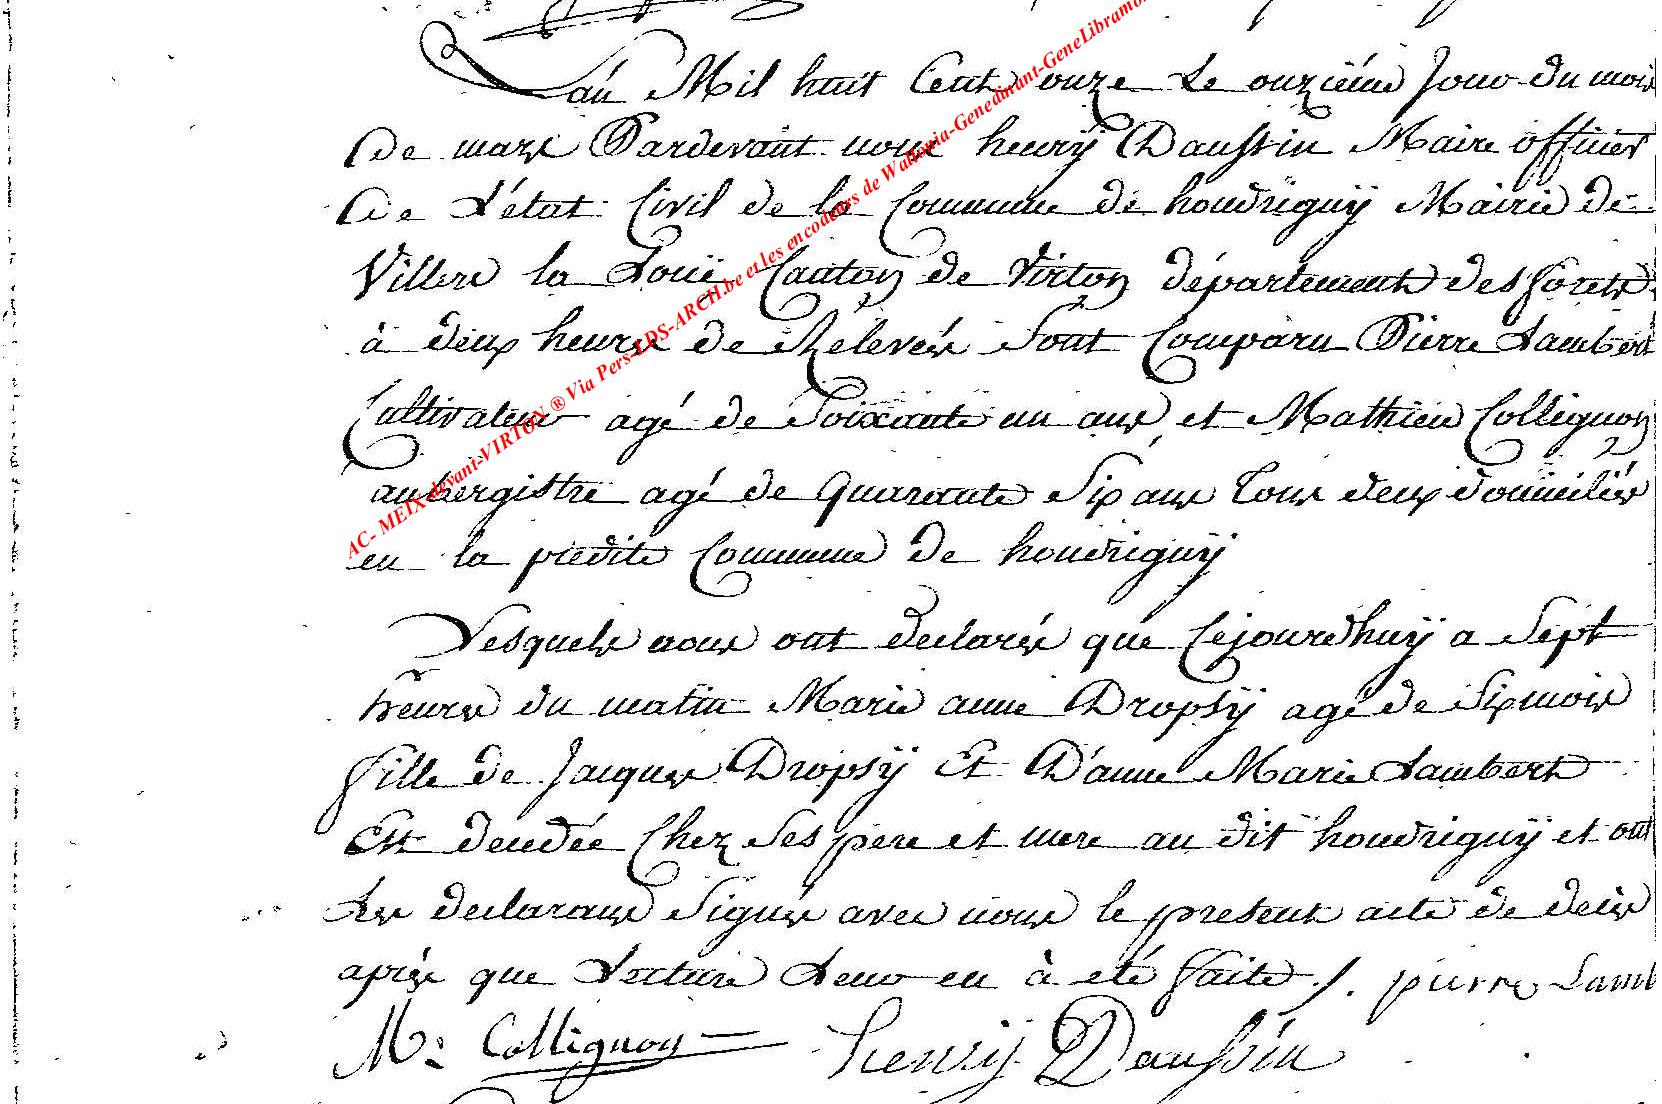 L'an Mil huit Cent onze Le onziéme Jour du mois
De mars Pardevant nous henrÿ Daussin Maire officier
De L'état Civil de la Commune de houdrignÿ Mairie de
Villers la Loüe Canton de Virton département des forets
à deux heures de Relevés Sont Comparu Pierre Lambert
Cultivateur agé de Soixante un ans et Mathieu Collignon
aubergiste agé de Quarante Six ans Tous deux domiciliés
en la predite Commune de houdrignÿ
Lesquels nous ont declarés que Cejourdhuÿ a Sept
heures du matin Marie anne Dropsÿ agé de Six mois
fille de Jacques Dropsÿ Et D'anne Marie Lambert
Est decedée Chez Ses pere et mere au dit houdrignÿ et ont
Les declarans Signés avec nous le present acte de decès
aprés que Lecture Leur en à eté faite ./. pierre Lamb
M: Collignon henrÿ Daussin
AC- MEIX-devant-VIRTON ® Via Pers-LDS-ARCH.be et les encodeurs de Wallonia-Genedinant-GeneLibramo